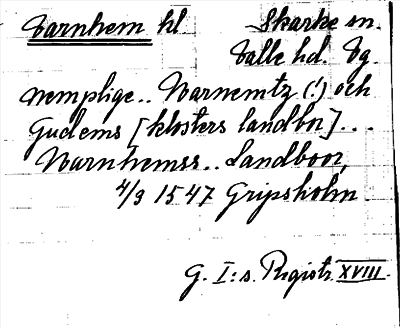 Varnhem kl Skarke sn.
Valle hd. Vg.
nemplige.. Warnemtz (!) och
Gudems [klosters landbor]...
Warnhemss.. Landboor,
4/9 1547 Gripsholm.
G. I:s. Registr. XVIII.